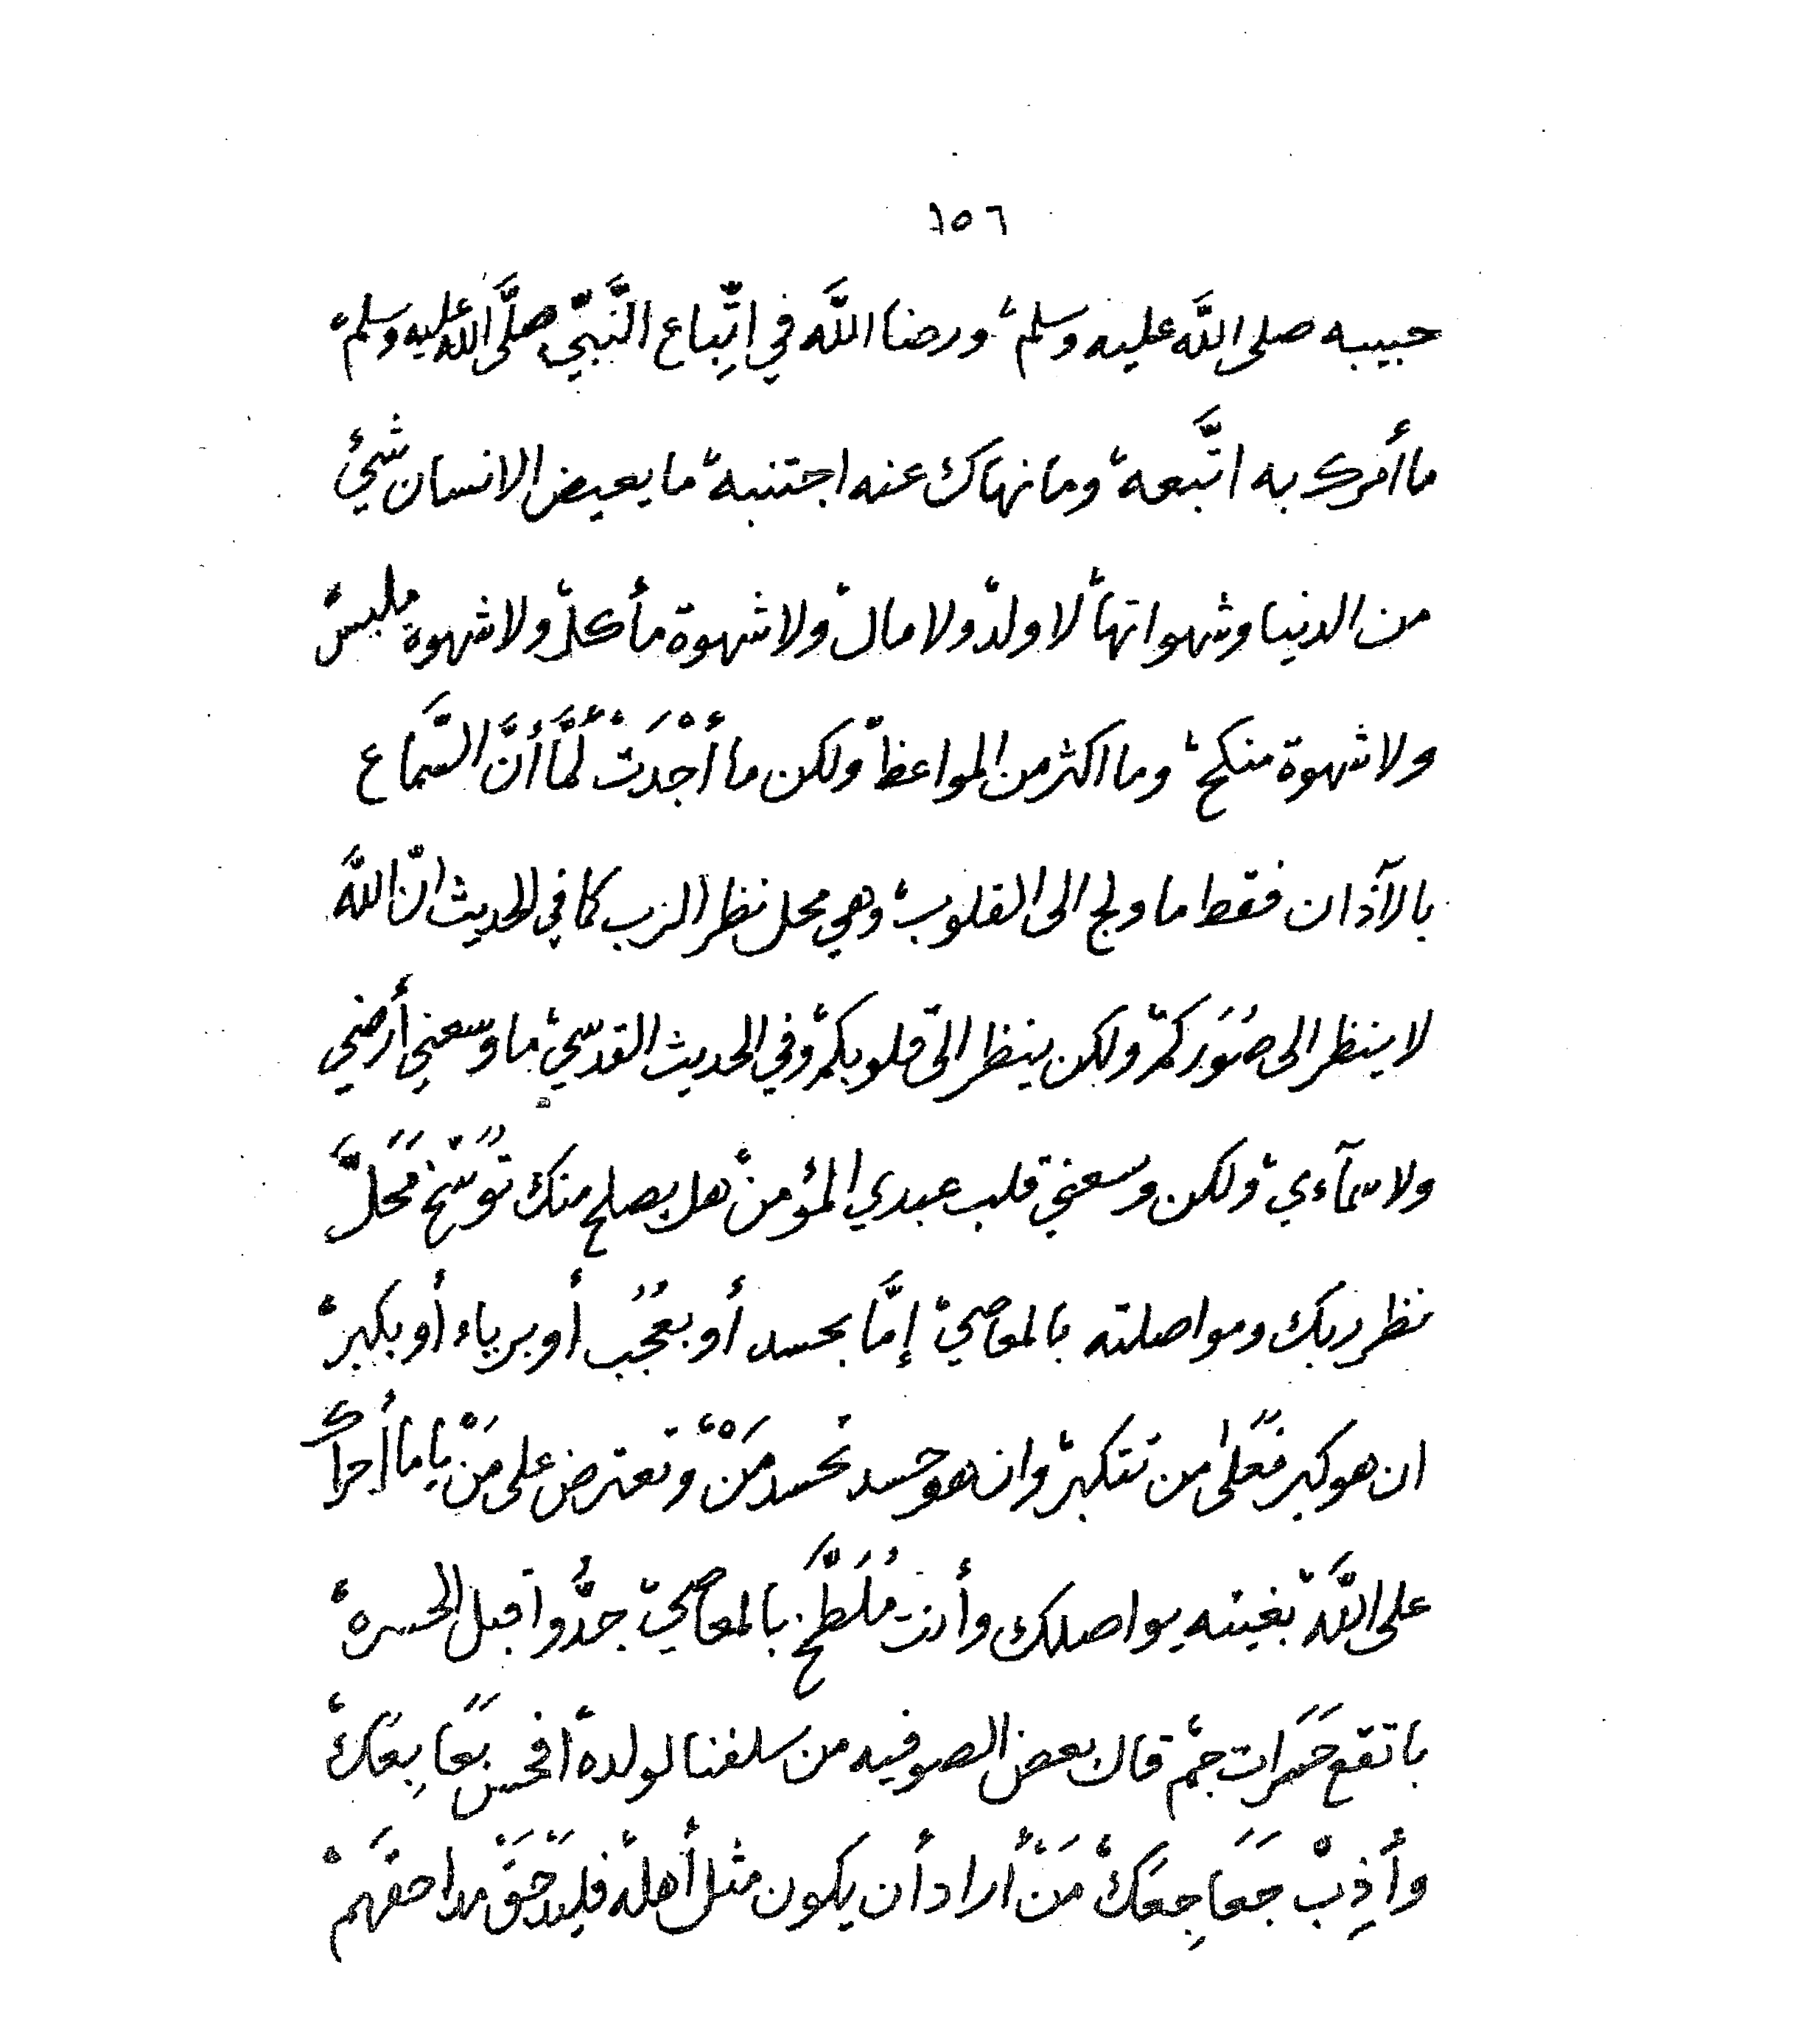 ١٥٦
حبيبه صلى اللَّه عليه وسلم، ورضا اللَّه في اتِّباع النَّبيّ صلَّى اللَّه عليه وسلم،
ما أمرك به اتَّبعه، وما نهاك عنه اجتنبه، ما يعيض الانسان شيء
من الدنيا وشهواتها، لا ولد، ولا مال، ولا شهوة مأكل، ولا شهوة ملبس،
ولا شهوة منكح، وما اكثر من المواعظ، ولكن ما أَجْدَتْ، لَمَّا أنَّ السَّماع
بالآذان فقط ما ولج الى القلوب، وهي محل نظر الرب كما في الحديث انّ اللَّه
لا ينظر الى صُوَركم، ولكن ينظر الى قلوبكم، وفي الحديث القدسيّ، ما وسعني أرضي
ولا سمآءي، ولكن وسعني قلب عبدي المؤمن، هل يصلح منك توسّخ مَحَلَّ
نظر ربك ومواصلته بالمعاصي، إمَّا بحسد أو بعُجُب أو برياء أو بكبر،
ان هو كبر فعَلى من تتكبر، وان هو حسد تحسد مَنْ، وتعترض على مَنْ، يا ما أجراك
على اللَّه، بغيته يواصلك وأنت مُلَطَّخ بالمعاصي، جدُّوا قبل الحسره،
با تقع حَسَرات جم، قال بعض الصوفيه من سلفنا لولده، افحس بَعَابِعَك،
وأَذِبْ جَعَاجِعَك، مَنْ أراد أن يكون مثل أهله، فليدْحَقْ مداحقهم،